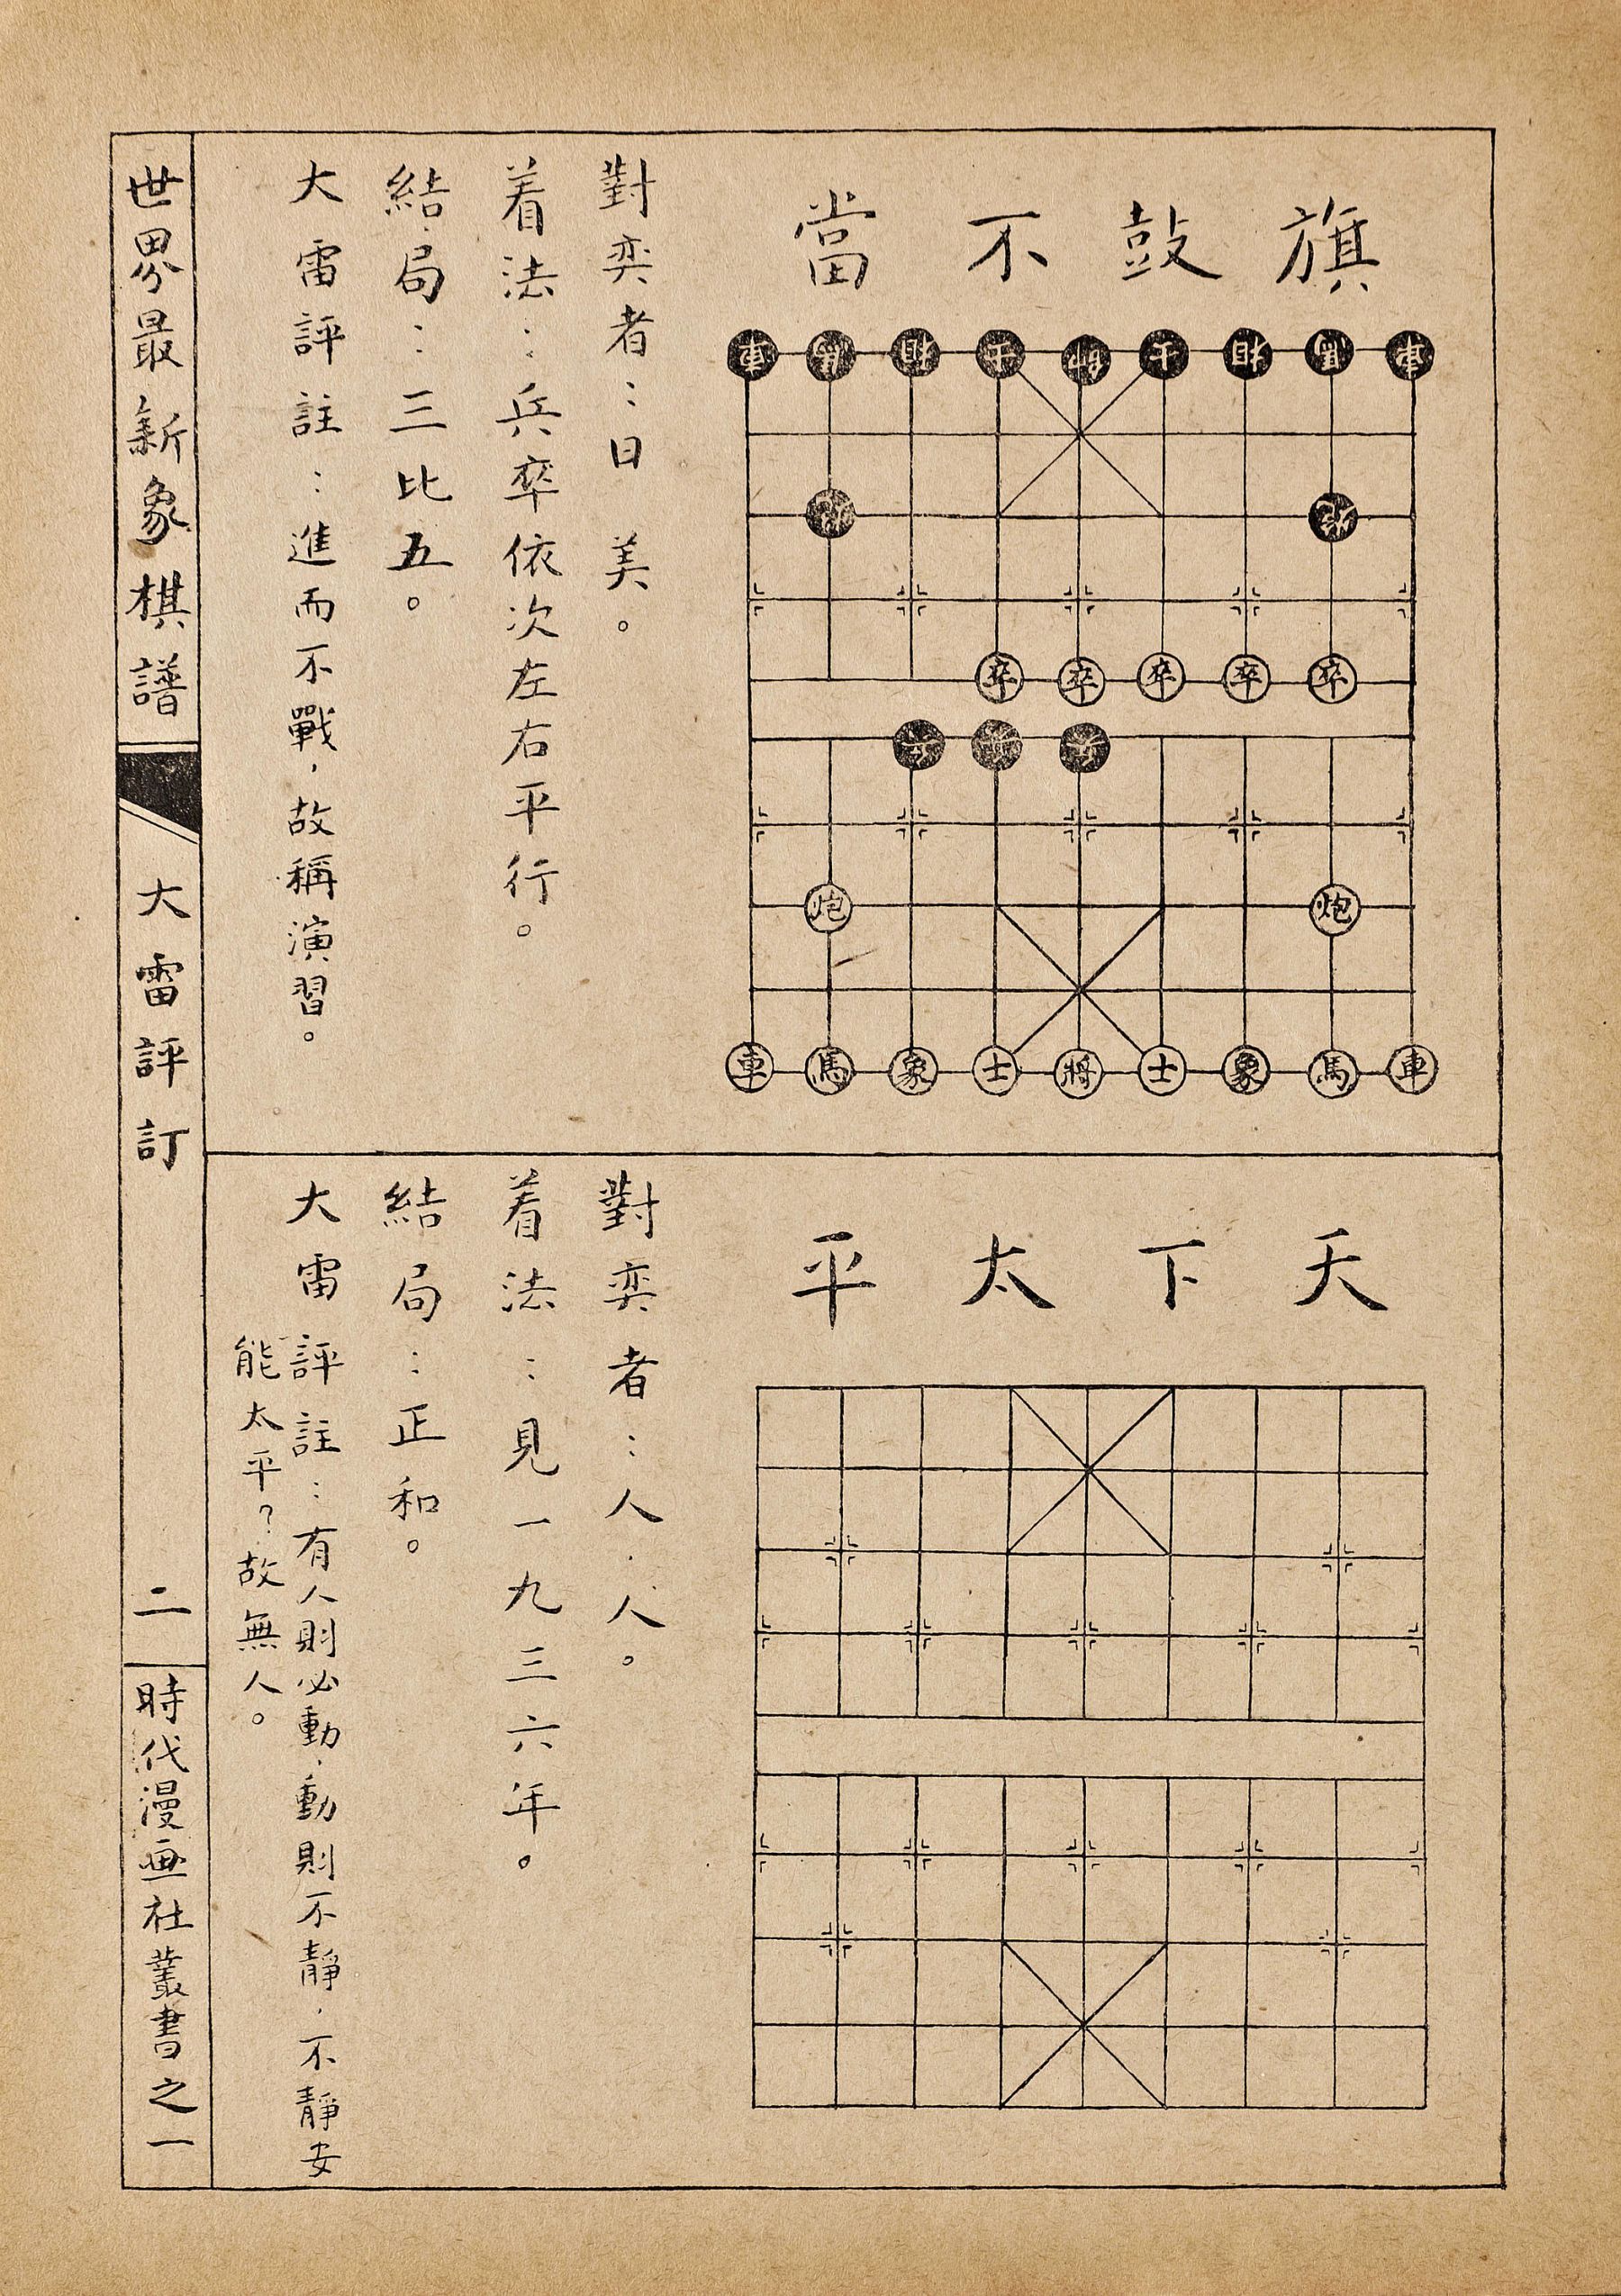 旗鼓不當
對奕者：日 美。
着法：兵卒依次左右平行。
結局：三比五。
大雷評註：進而不戰，故稱演習。
卒卒卒卒卒
炮 炮
車馬象士將士象馬車
天下太平
對奕者：人．人。
着法：見一九三六年。
結局：正和。
大雷評註：有人則必動，動則不靜，不靜安
能太平？故無人。
世界最新象棋譜
大雷評訂
二
時代漫画社叢書之一